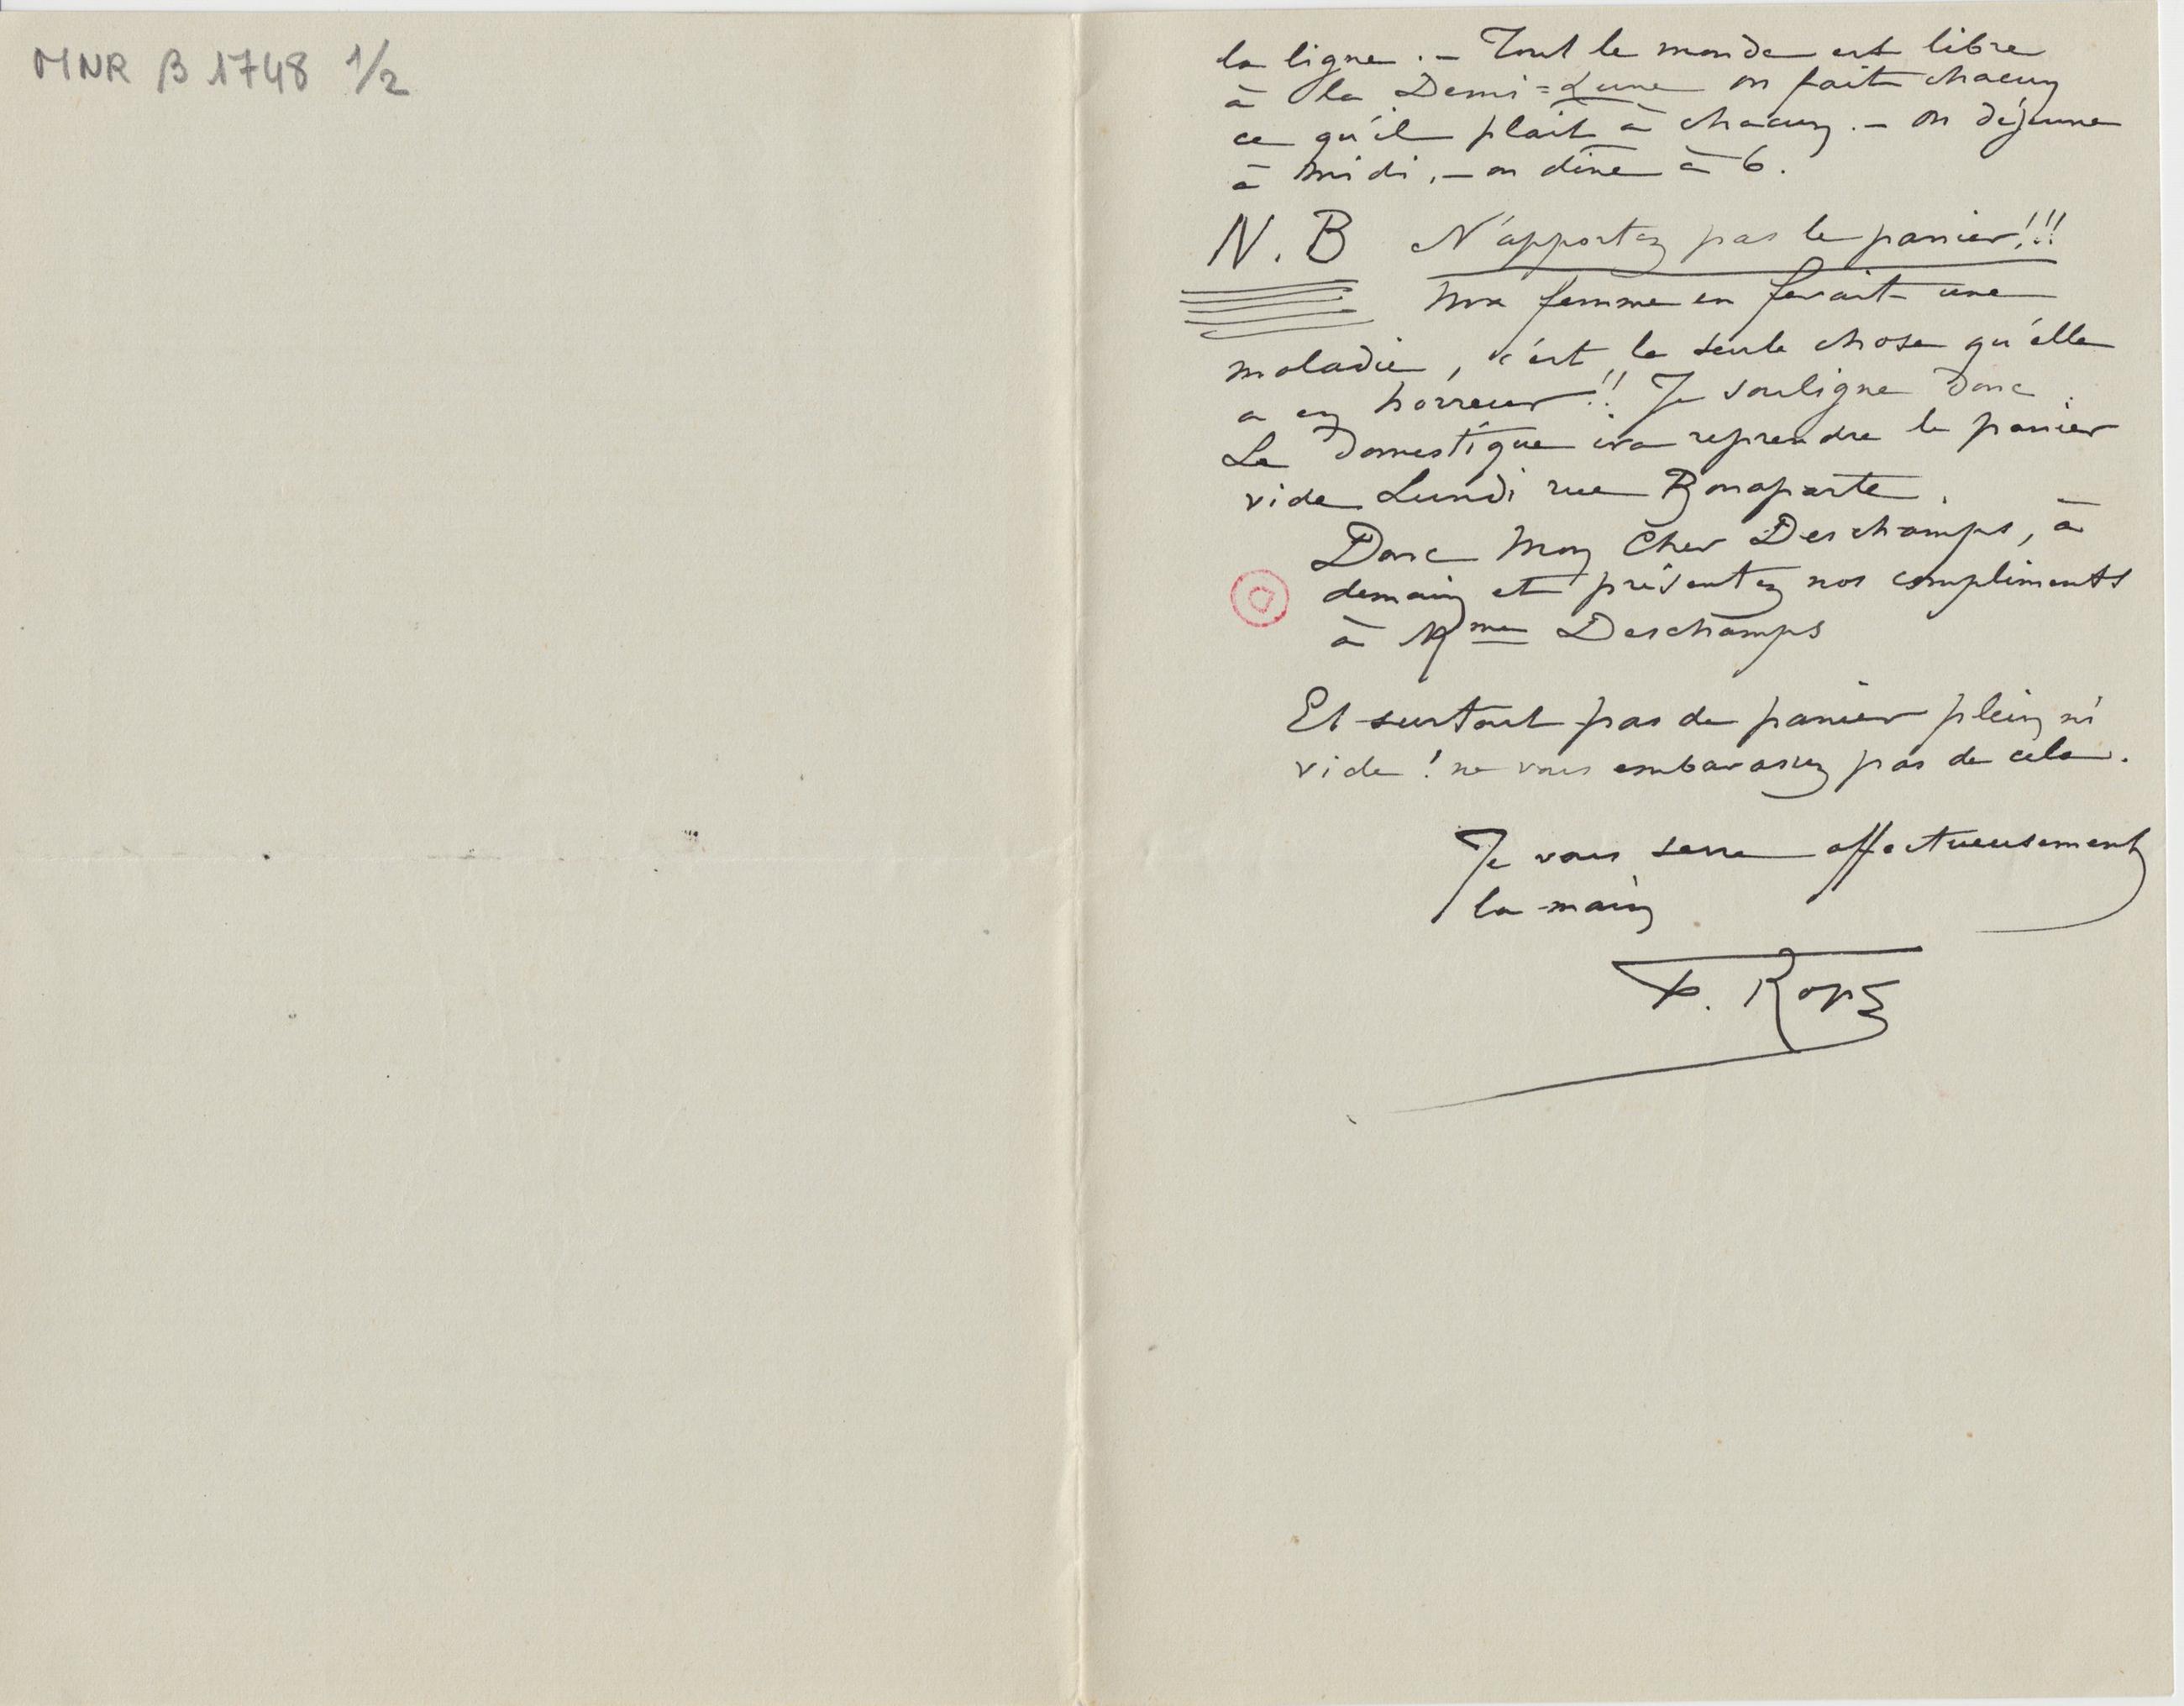 MNR B 1748 1/2
la ligne. – Tout le monde est libre
à la Demi=Lune on fait chacun
ce qu'il plait à chacun. – on déjeune
à midi, – on dîne à 6.
N. B N'apportez pas le panier!!!
Ma femme en ferait une
maladie, c'est la seule chose qu'elle
a en horreur!! Je souligne donc.
Le Domestique ira reprendre le panier
vide Lundi rue Bonaparte.
Donc Mon Cher Deschamps, à
demain et présentez nos compliments
à Mme Deschamps
Et surtout pas de panier plein ni
vide! ne vous embarassez pas de cela.
Je vous serre affectueusement
la main
F. Rops